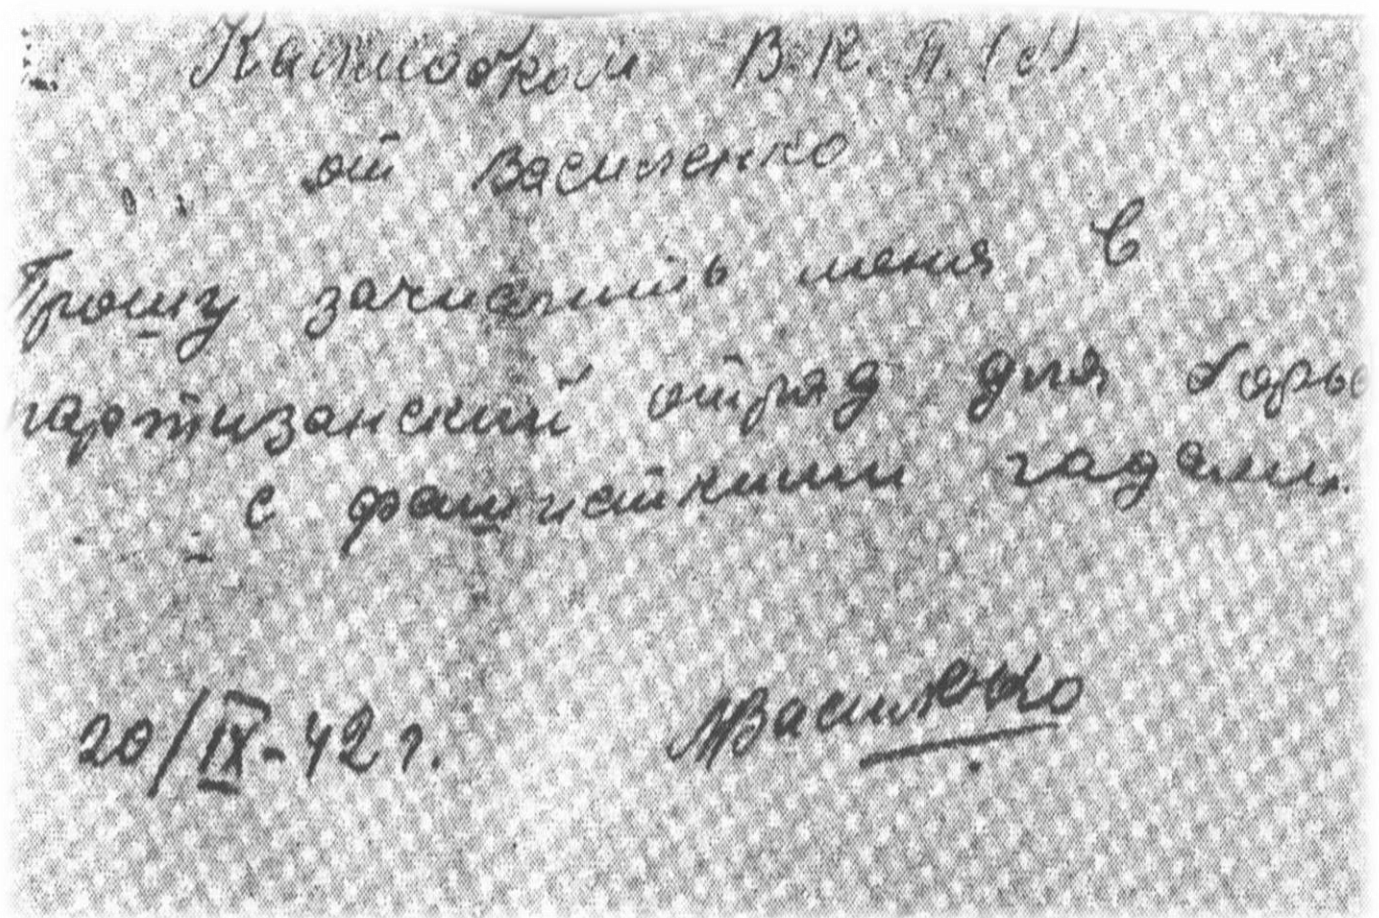 Калмобком В.К.П.(б).
от Василенко
Прошу зачислить меня в
партизанский отряд для борьб
с фашисткими гадами.
20/IX-42 г. МВасиленко